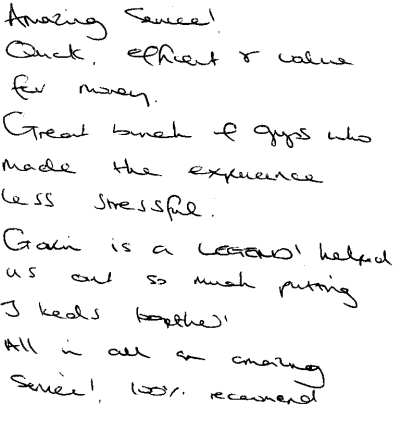 Amazing Service!
Quick, efficient & value
for money.
Great bunch of guys who
made the experience
less stressful.
Gavin is a LEGEND! helped
us out so much putting
3 beds together!
All in all an amazing
Service! 100% recommend